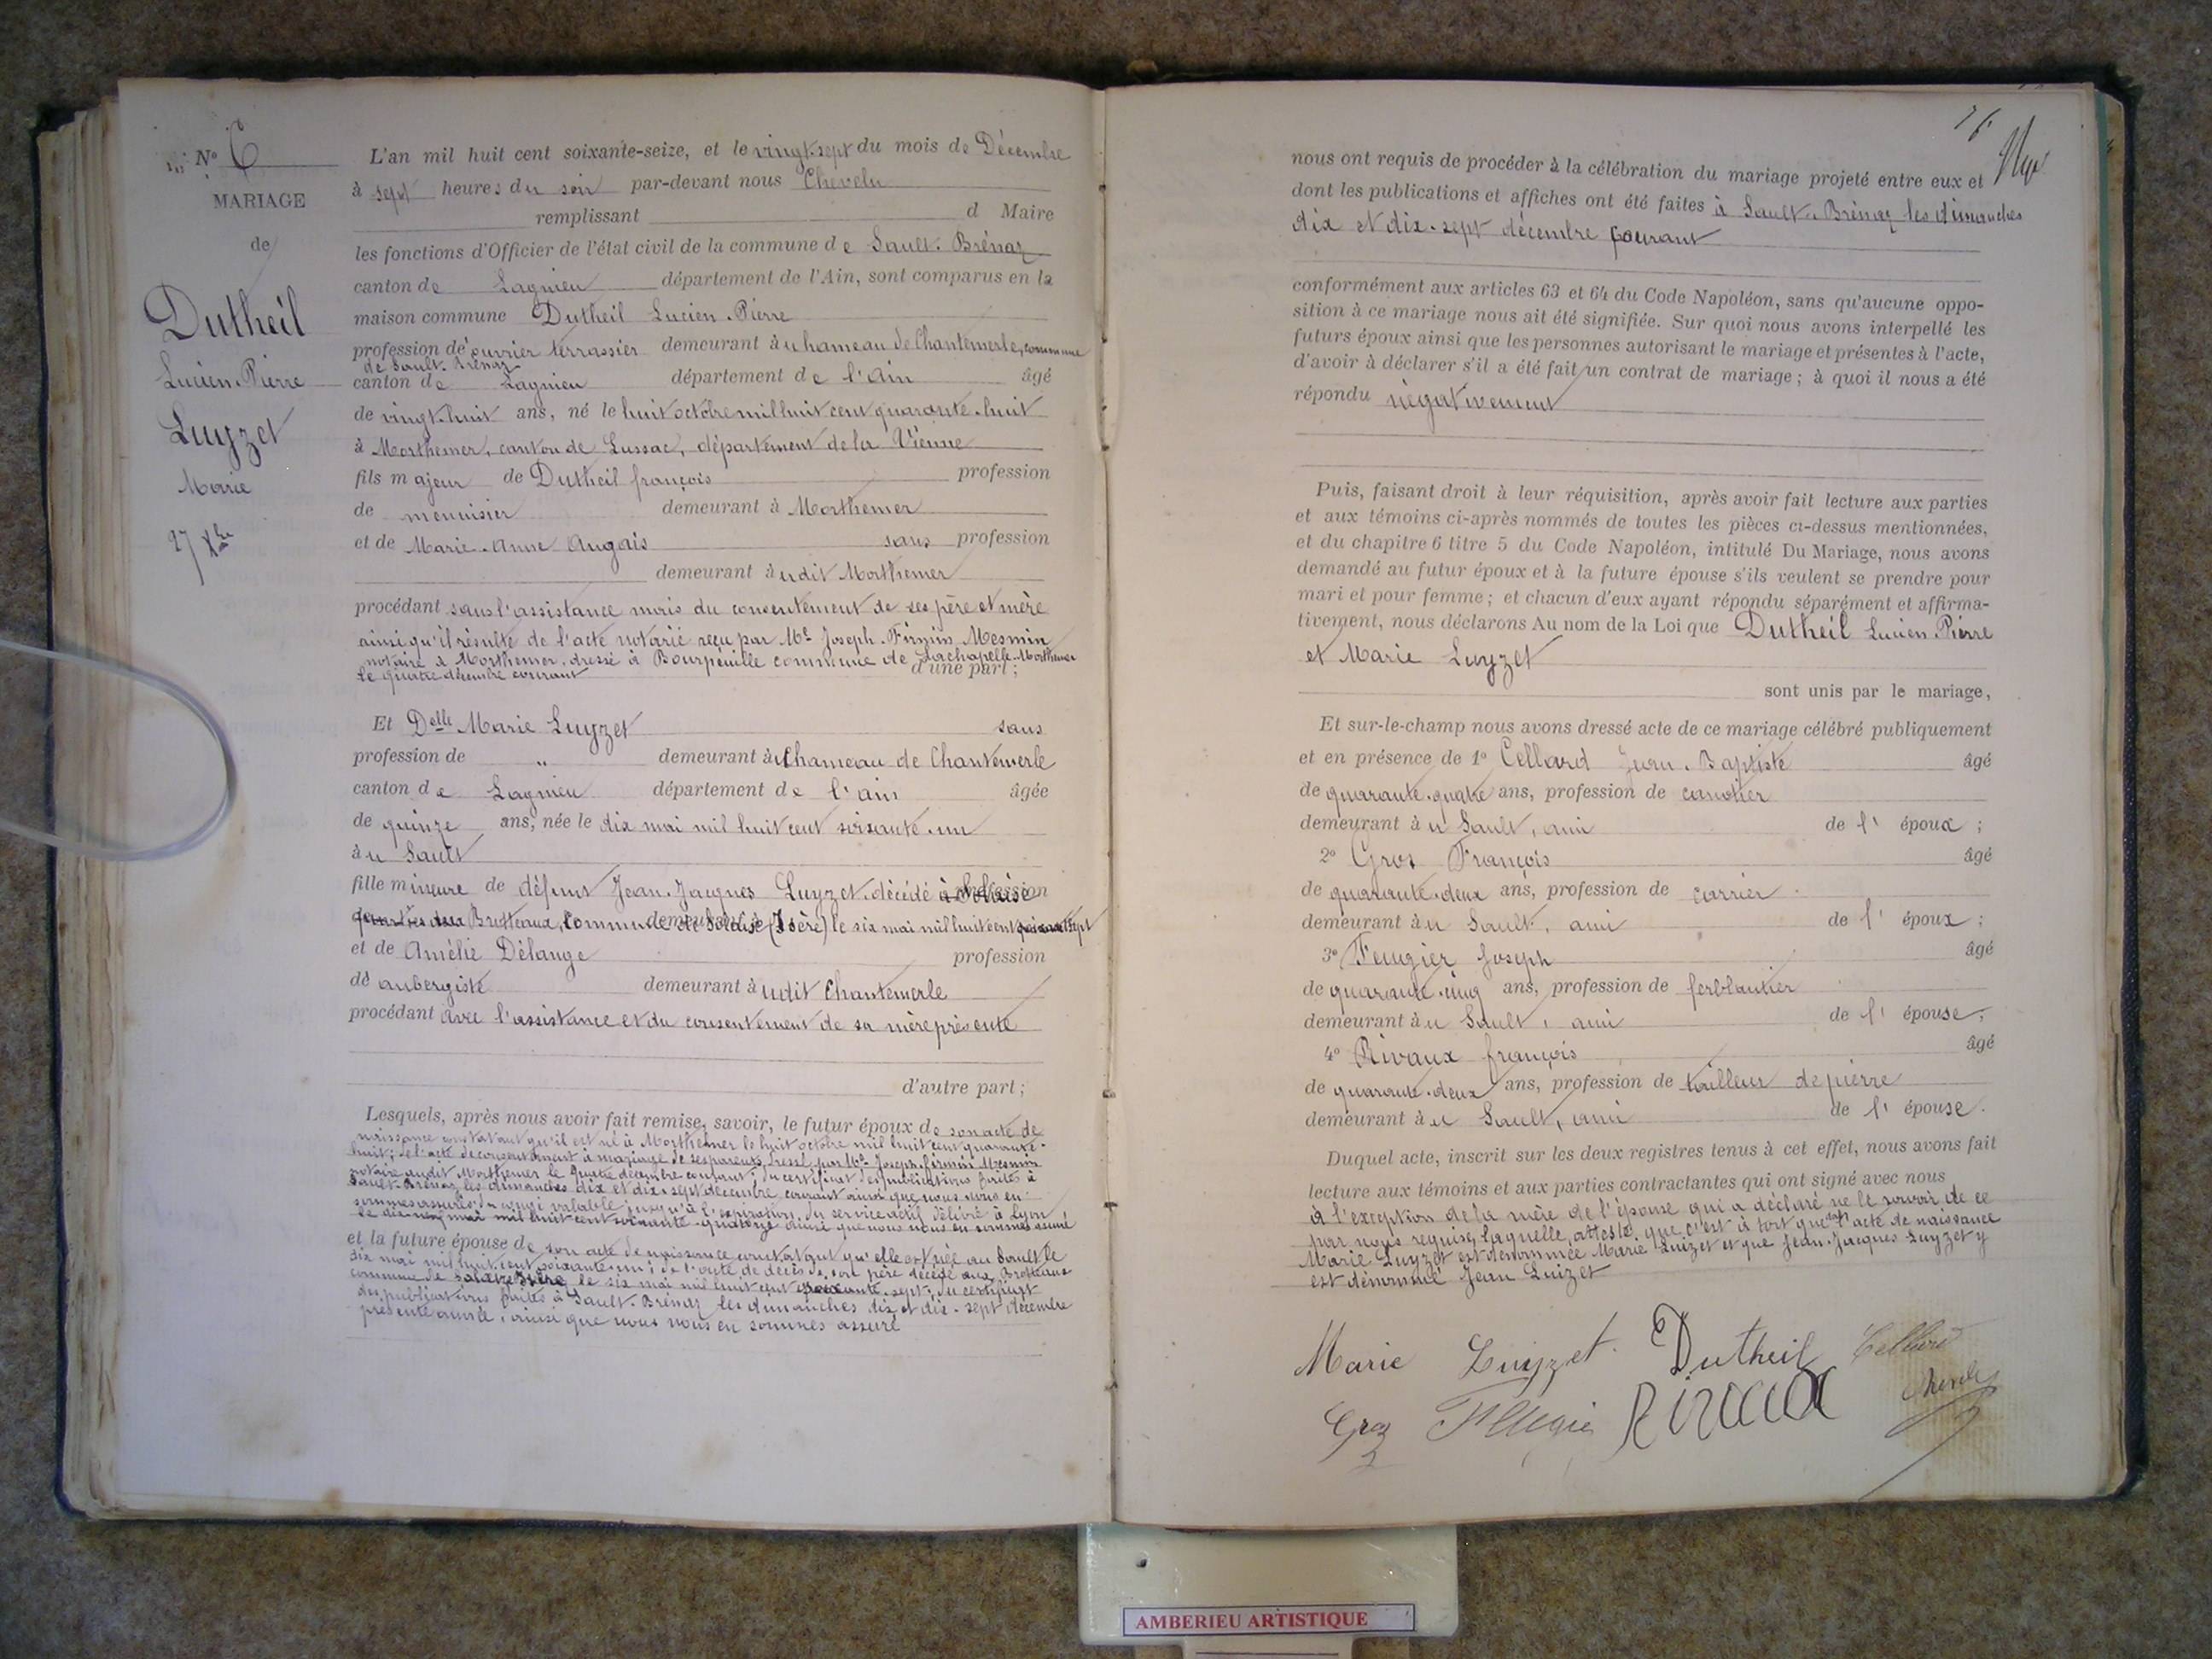 N° 6
MARIAGE
de
Dutheil
Lucien-Pierre
Luyzet
Marie
27 Xbre
L'an mil huit cent soixante-seize, et le vingt-sept du mois de Décembre
à sept heures du soir par-devant nous Chevelu
remplissant d Maire
les fonctions d'Officier de l'état civil de la commune de Sault-Brénaz
canton de Lagnieu département de l'Ain, sont comparus en la
maison commune Dutheil Lucien-Pierre
profession de ouvrier terrassier demeurant à u hameau de Chantemerle, commune
de Sault-Brénaz
canton de Lagnieu département de l'Ain âgé
de vingt-huit ans, né le huit octobre mil huit cent quarante-huit
à Morthemer, canton de Lussac, département de la Vienne
fils majeur de Dutheil françois profession
de menuisier demeurant à Morthemer
et de Marie-Anne Augais sans profession
demeurant à udit Morthemer
procédant sans l'assistance mais du consentement de ses père et mère
ainsi qu'il résulte de l'acte notarié reçu par Me Joseph-Firmin Mesmin
notaire à Morthemer, dressé à commune de Lachapelle-Morthemer
le quatre décembre courant d'une part;
Et Delle Marie Luyzet sans
profession de „ demeurant à u hameau de Chantemerle
canton de Lagnieu département de l'ain âgée
de quinze ans, née le dix mai mil huit cent soixante-un
à u Sault
fille mineure de défunt Jean-Jacques Luyzet décédé à Solaise profession
Brotteaux, Commune de Solaise (Isère) le six mai mil huit cent soixante sept
demeurant à
et de Amélie Délange profession
de aubergiste demeurant à udit Chantemerle
procédant avec l'assistance et du consentement de sa mère présente
d'autre part;
Lesquels, après nous avoir fait remise, savoir, le futur époux de son acte de
naissance constatant qu'il est né à Morthemer le huit octobre mil huit cent quarante-
huit; de l'acte de consentement à mariage de ses parents, dressé par Me Joseph-firmin Mesmin
notaire audit Morthemer le quatre décembre courant; du certificat des publications faites à
Sault-Brénaz les dimanches dix et dix-sept décembre courant ainsi que nous nous en
sommes assurés; du congé valable jusqu'à l'expiration du service actif délivré à Lyon
le mai mil huit cent soixante-quatorze ainsi que nous nous en sommes assuré
et la future épouse de son acte de naissance constatant qu'elle est née au Sault le
dix mai mil huit cent soixante-un; de l'acte de décès de son père décédé aux Brotteaux
commune de le six mai mil huit cent soixante-sept; du certificat
des publications faites à Sault-Brénaz les dimanches dix et dix-sept décembre
présente année, ainsi que nous nous en sommes assuré
nous ont requis de procéder à la célébration du mariage projeté entre eux et
dont les publications et affiches ont été faites à Sault-Brénaz les dimanches
dix et dix-sept décembre courant
conformément aux articles 63 et 64 du Code Napoléon, sans qu'aucune oppo-
sition à ce mariage nous ait été signifiée. Sur quoi nous avons interpellé les
futurs époux ainsi que les personnes autorisant le mariage et présentes à l'acte,
d'avoir à déclarer s'il a été fait un contrat de mariage; à quoi il nous a été
répondu négativement
Puis, faisant droit à leur réquisition, après avoir fait lecture aux parties
et aux témoins ci-après nommés de toutes les pièces ci-dessus mentionnées,
et du chapitre 6 titre 5 du Code Napoléon, intitulé Du Mariage, nous avons
demandé au futur époux et à la future épouse s'ils veulent se prendre pour
mari et pour femme; et chacun d'eux ayant répondu séparément et affirma-
tivement, nous déclarons Au nom de la Loi que Dutheil Lucien-Pierre
et Marie Luyzet
sont unis par le mariage,
Et sur-le-champ nous avons dressé acte de ce mariage célébré publiquement
et en présence de 1° Cellard Jean-Baptiste âgé
de quarante-quatre ans, profession de canotier
demeurant à u Sault, ami de l' époux;
2° Gros François âgé
de quarante-deux ans, profession de carrier
demeurant à u Sault, ami de l' époux;
3° Feugier Joseph âgé
de quarante-cinq ans, profession de ferblantier
demeurant à u Sault, ami de l' épouse;
4° Rivaux françois âgé
de quarante-deux ans, profession de tailleur de pierre
demeurant à u Sault, ami de l' épouse.
Duquel acte, inscrit sur les deux registres tenus à cet effet, nous avons fait
lecture aux témoins et aux parties contractantes qui ont signé avec nous
à l'exception de la mère de l'épouse qui a déclaré ne le savoir de ce
par nous requise, laquelle atteste que c'est à tort que dans l'acte de naissance
Marie Luyzet est dénommée Marie Luizet et que Jean-Jacques Luyzet y
est dénommé Jean Luizet
Marie Luyzet Dutheil Cellard
Groz Rivaux Chevelu
AMBERIEU ARTISTIQUE